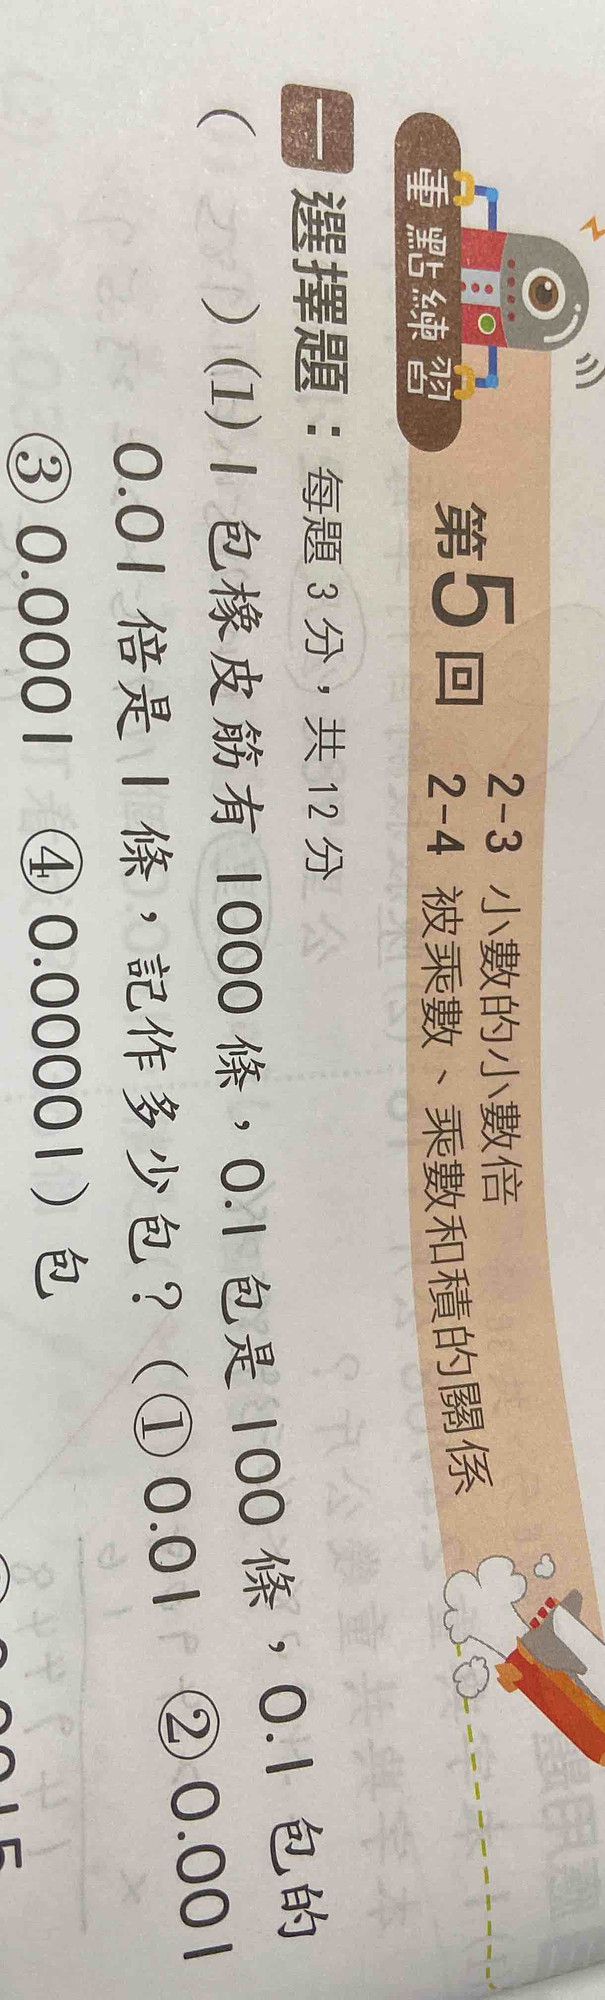 重點練習
第5回
2-3 小數的小數倍
2-4 被乘數、乘數和積的關係
一 選擇題：每題3分，共12分
(　　)(1) 1包橡皮筋有1000條，0.1包是100條，0.1包的
0.01倍是1條，記作多少包？(①0.01 ②0.001
③0.0001 ④0.00001)包